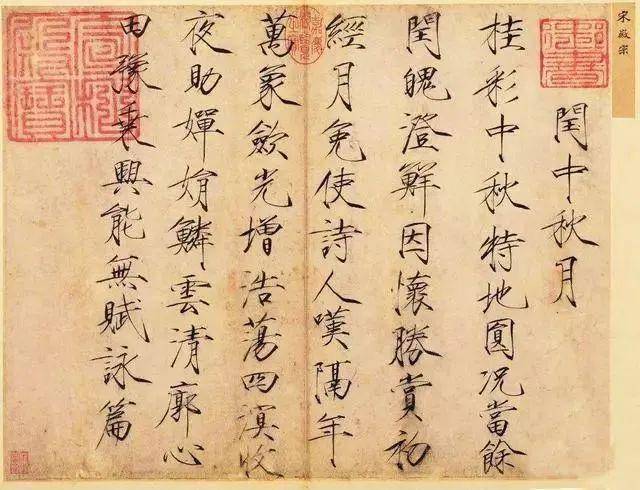 宋徽宗
御書
閏中秋月
桂彩中秋特地圓况當餘
閏魄澄鮮因懷勝賞初
經月免使詩人嘆隔年
萬象歛光增浩蕩四溟收
夜助嬋娟鱗雲清廓心
田豫乘興能無賦詠篇